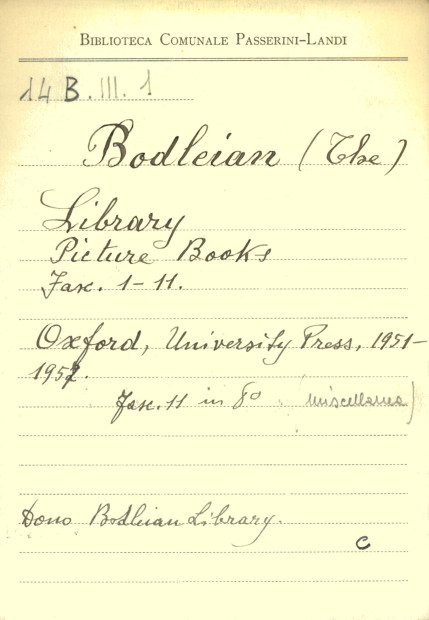 BIBLIOTECA COMUNALE PASSERINI-LANDI
14 B. III. 1
Bodleian (The)
Library
Picture Books
Fasc. 1-11.
Oxford, University Press, 1951-
1957.
Fasc. 11 in 8° miscellanea)
Dono Bodleian Library.
C